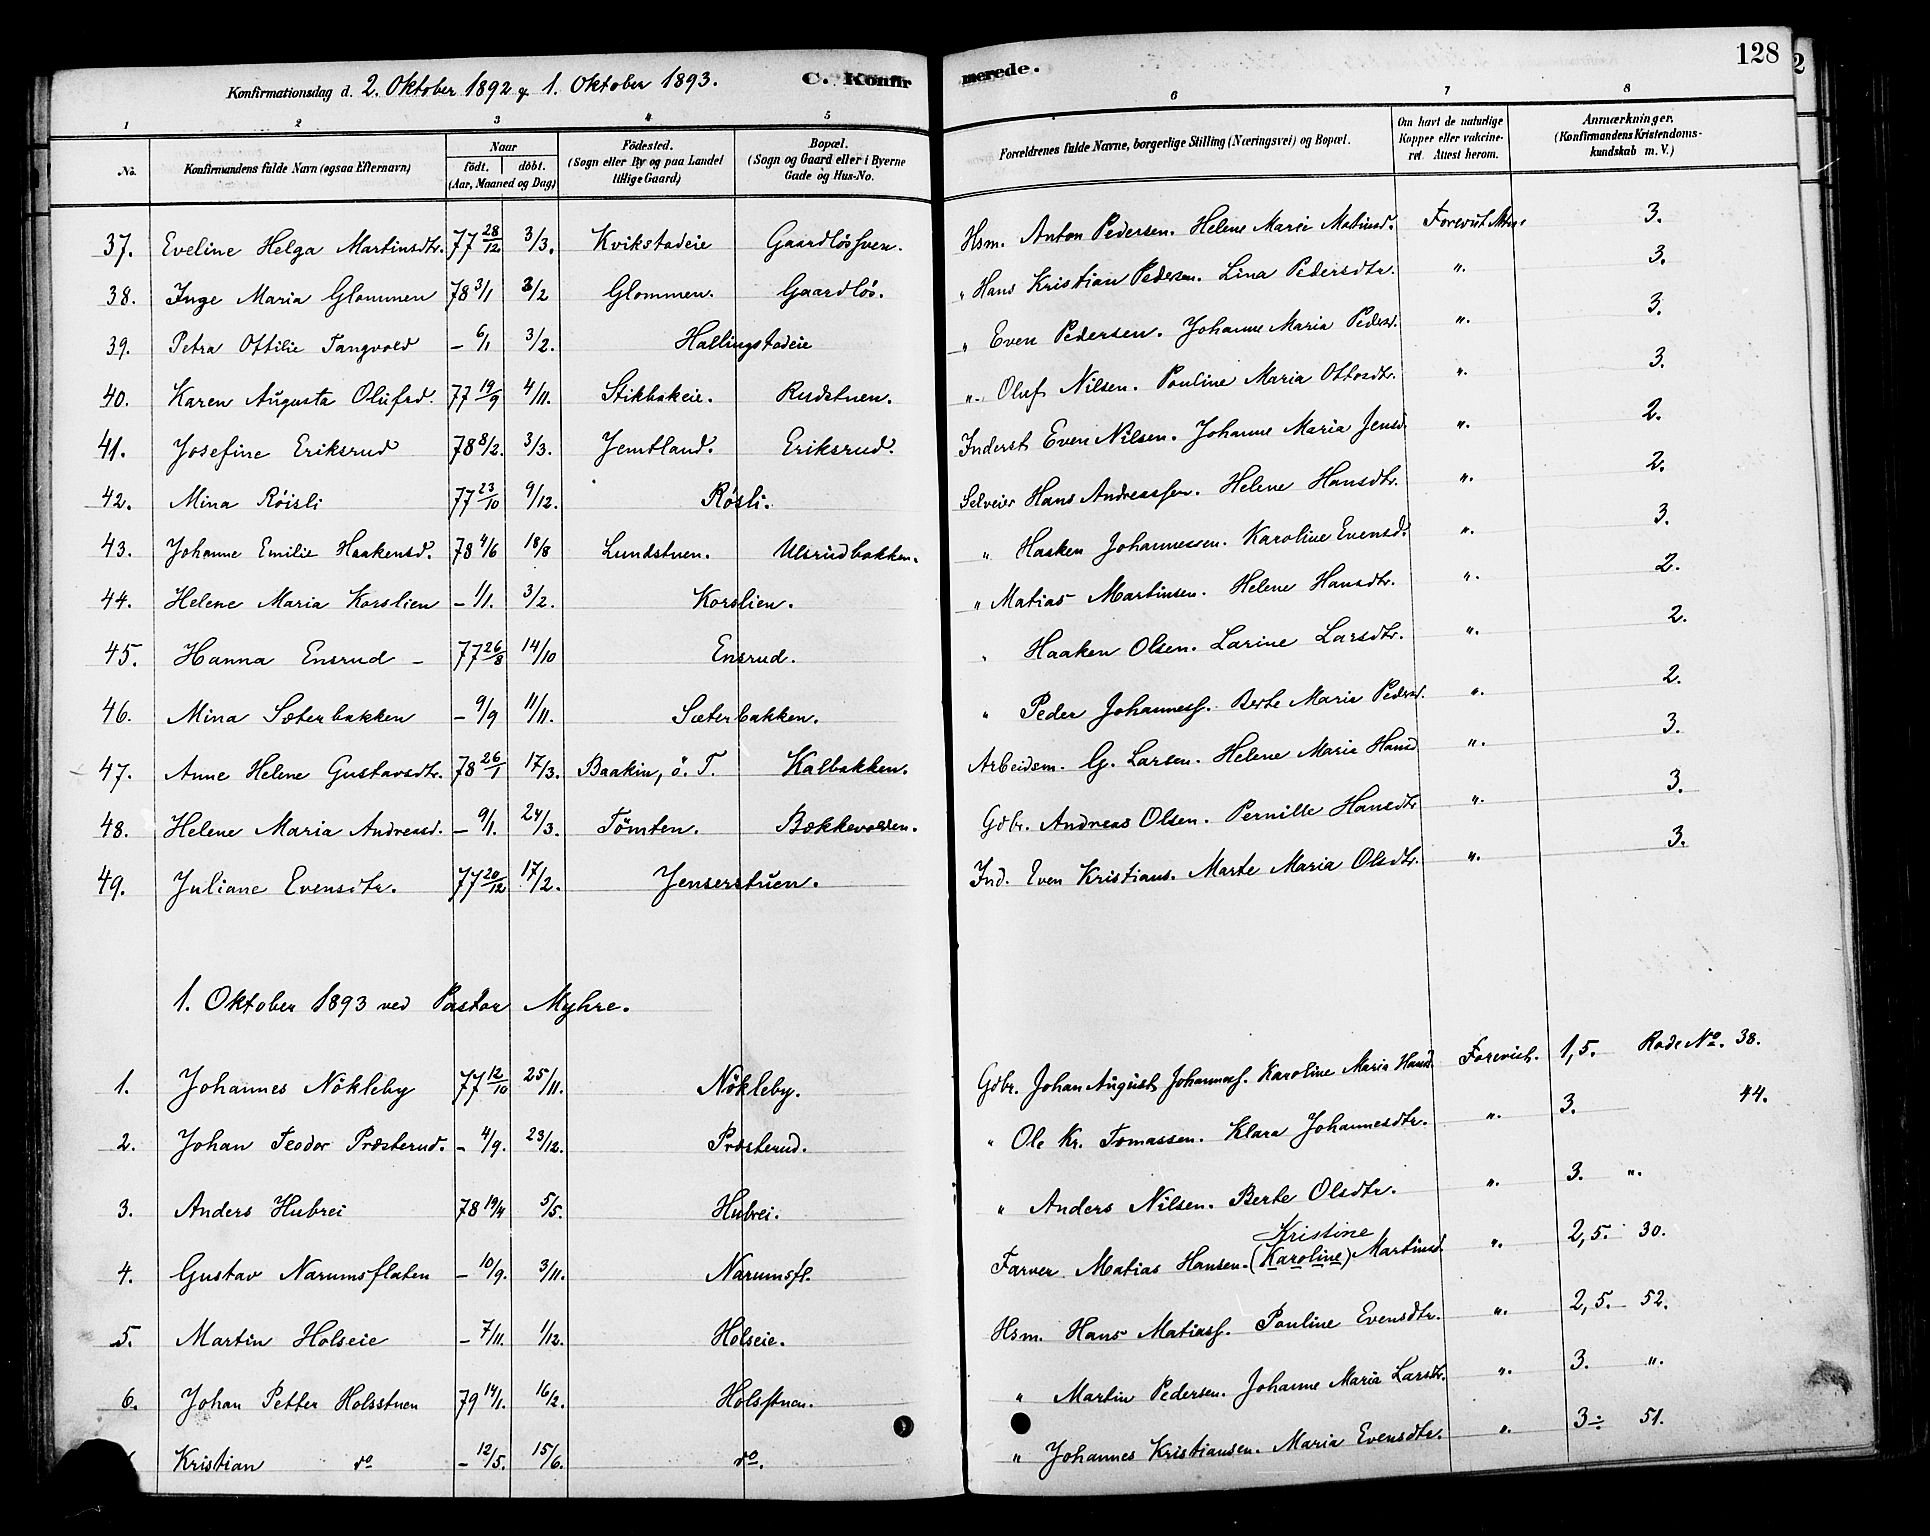 Konfirmationsdag d. 2. Oktober 1892 & 1. Oktober 1893. C. Konfirmerede. 128
1 2 3 4 5 6 7 8
No. Konfirmandens fulde Navn (ogsaa Efternavn) Naar födt. döbt. (Aar, Maaned og Dag) Födested. (Sogn eller By og paa Landet tillige Gaard) Bopæl. (Sogn og Gaard eller i Byerne Gade og Hus-No. Forældrenes fulde Navne, borgerlige Stilling (Næringsvei) og Bopæl. Om havt de naturlige Kopper eller vakcineret. Attest herom. Anmærkninger. (Konfirmandens Kristendomskundskab m. V.)
37. Eveline Helga Martinsdtr. 77 28/12 3/3. Kvikstadeie Gaardlös Hsm. Anton Pedersen. Helene Marie Matiasd. Forevist 3.
38. Inge Maria Glommen 78 3/1 3/2 Glommen. Gaardlös. " Hans Kristian Pedersen. Lina Pedersdtr. " 3.
39. Petra Ottilie Tangvold – 6/1 3/2. Hallingstadeie " Even Pedersen. Johanne Maria Pedersd. " 3.
40. Karen Augusta Olufsd. 77 19/9 4/11. Stikbakeie. Rudstuen. " Oluf Nilsen. Pauline Maria Ottosdtr. " 3.
41. Josefine Eriksrud 78 8/2. 3/3. Jemtland. Eriksrud. Inderst Even Nilsen. Johanne Maria Jensd. " 2.
42. Mina Röisli 77 23/10 9/12. Rösli. Selveier Hans Andreassen. Helene Hansdtr. " 2.
43. Johanne Emilie Haakensd. 78 4/6 18/8 Lundstuen. Ulsrudbakken. " Haaken Johannessen. Karoline Evensd. " 3.
44. Helene Maria Korslien – 1/1. 3/2. Korslien. " Matias Martinsen. Helene Hansdtr. " 2.
45. Hanna Ensrud – 77 26/8 14/10 Ensrud. " Haaken Olsen. Larine Larsdtr. " 2.
46. Mina Sæterbakken – 9/9 11/11. Sæterbakken. " Peder Johanness. Berte Maria Pedersd. " 2.
47. Anne Helene Gustavsdtr. 78 26/1 17/3. Baakin, ö. T. Kalbakken. Arbeidsm. G. Larsen. Helene Maria Hansd. " 3.
48. Helene Maria Andreasd. – 9/1. 24/3. Tömten. Bækkevolden. Gdbr. Andreas Olsen. Pernille Hansdtr " 3.
49. Juliane Evensdtr. 77 20/12 17/2. Jenserstuen. Ind. Even Kristians. Marte Maria Olsdtr. " 3.
1. Oktober 1893 ved Pastor Myhre.
1. Johannes Nökleby 77 12/10 25/11. Nökleby. Gdbr. Johan August Johanness. Karoline Maria Hansd. Forevist. 1,5. Rode No. 38.
2. Johan Teodor Præsterud. – 4/9. 23/12. Præsterud. " Ole Kr. Tomassen. Klara Johannesdtr. " 3. 44.
3. Anders Hubrei 78 19/4 5/5. Hubrei. " Anders Nilsen. Berte Olsdtr. " 3. "
4. Gustav Narumsflaten – 10/9. 3/11. Narumsfl. Farver Matias Hansen. Kristine (Karoline) Martinsd. " 2,5. 30.
5. Martin Holseie – 7/11. 1/12. Holseie. Hsm. Hans Matiass. Pauline Evensdtr. " 2,5. 52.
6. Johan Petter Holsstuen 79 14/1. 16/2. Holsstuen. " Martin Pedersen. Johanne Maria Larsdtr. " 3. "
Kristian do – 12/5. 15/6. do. " Johannes Kristiansen. Maria Evensdtr. " 3 51.